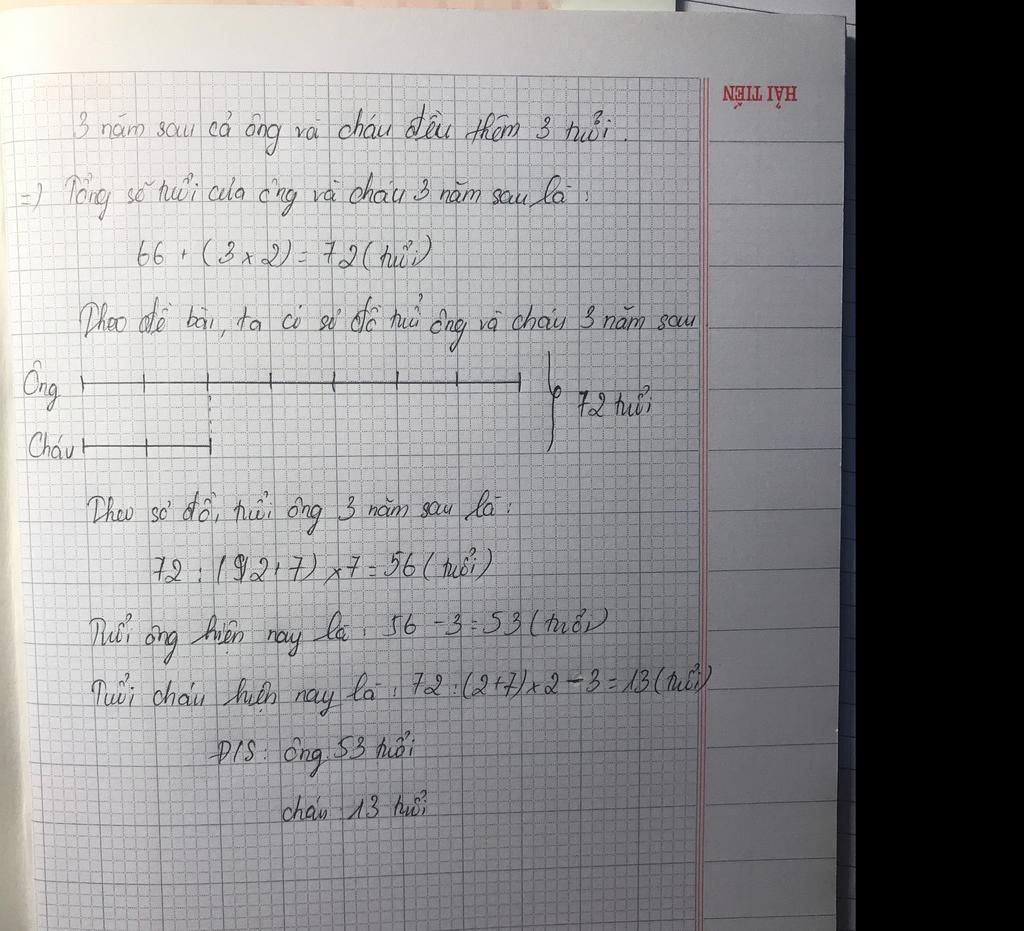 HẢI TIẾN
3 năm sau cả ông và cháu đều thêm 3 tuổi.
=) Tổng số tuổi của ông và cháu 3 năm sau là:
66 + (3 x 2) = 72 (tuổi)
Theo đề bài, ta có sơ đồ tuổi ông và cháu 3 năm sau
Ông
72 tuổi
Cháu
Theo sơ đồ, tuổi ông 3 năm sau là:
72 : (2+7) x 7 = 56 (tuổi)
Tuổi ông hiện nay là: 56 - 3 = 53 (tuổi)
Tuổi cháu hiện nay là: 72 : (2+7) x 2 - 3 = 13 (tuổi)
Đ/S: ông 53 tuổi
cháu 13 tuổi